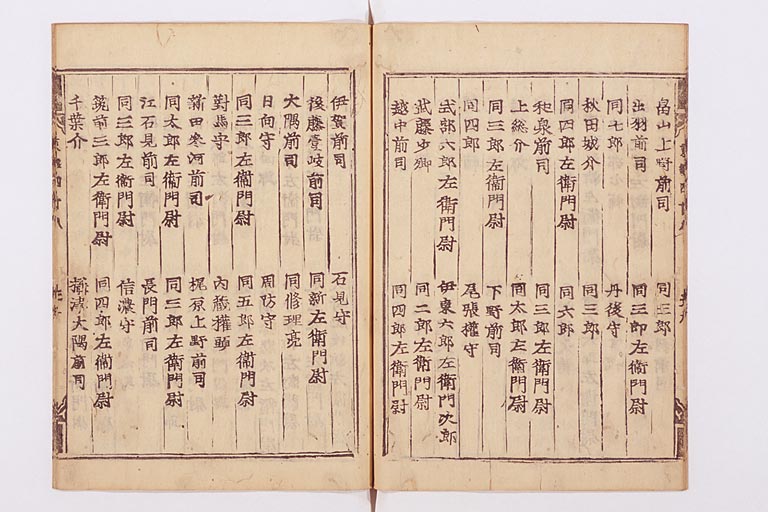 畠山上野前司　同三郎
出羽前司　同三郎左衛門尉
同七郎　丹後守
秋田城介　同三郎
同四郎左衛門尉　同六郎
和泉前司　同三郎左衛門尉
上総介　同太郎左衛門尉
同三郎左衛門尉　下野前司
同四郎　尾張權守
式部六郎左衛門尉　伊東六郎左衛門次郎
武藤少卿　同二郎左衛門尉
越中前司　同四郎左衛門尉
伊賀前司　石見守
後藤壹岐前司　同新左衛門尉
大隅前司　同修理亮
日向守　周防守
同三郎左衛門尉　同五郎左衛門尉
對馬守　内藏權頭
新田参河前司　梶原上野前司
同太郎左衛門尉　同三郎左衛門尉
江石見前司　長門前司
同三郎左衛門尉　信濃守
筑前三郎左衛門尉　同四郎左衛門尉
千葉介　大隅前司